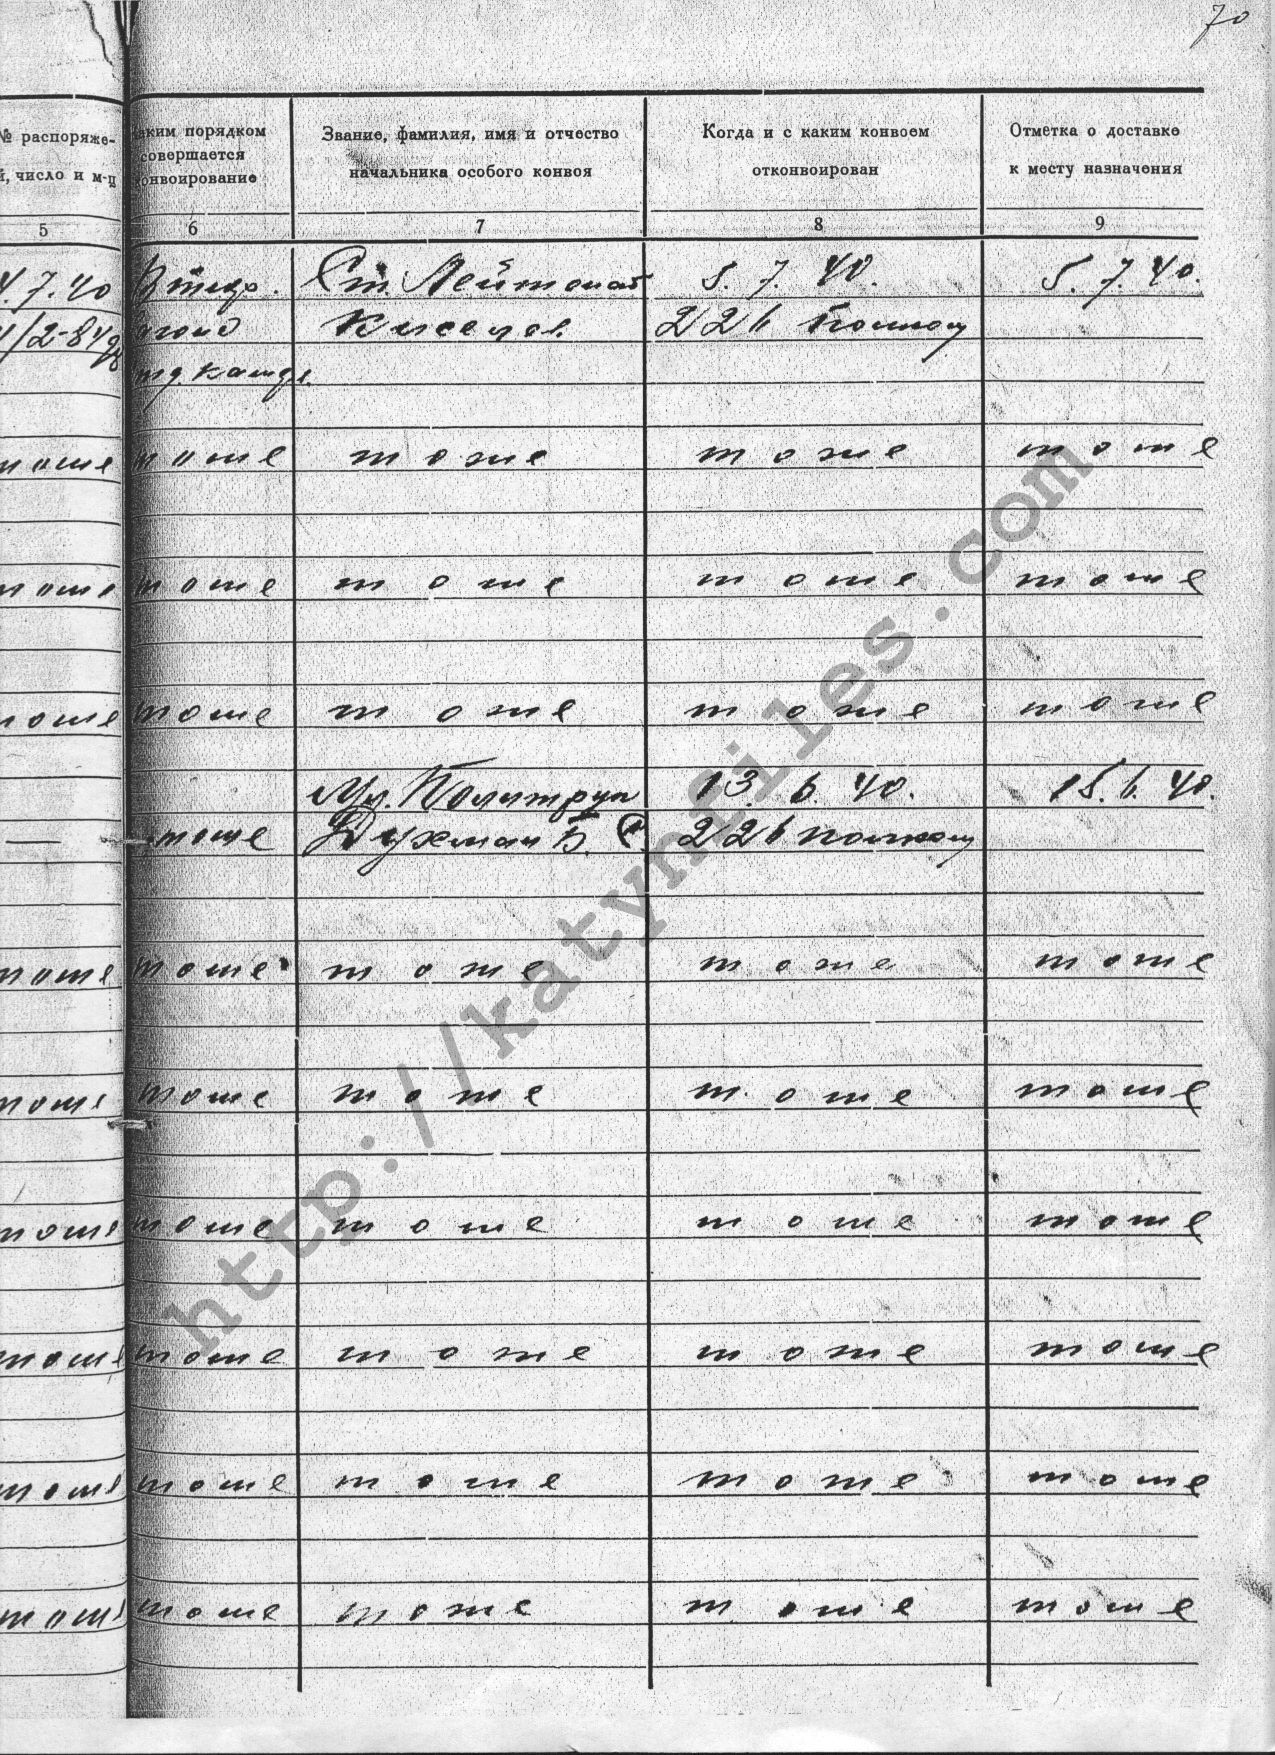 70
№ распоряже- каким порядком Звание, фамилия, имя и отчество Когда и с каким конвоем Отметка о доставке
й, число и м-ц совершается начальника особого конвоя отконвоирован к месту назначения
конвоирование
5 6 7 8 9
4.7.40 Ст. Лейтенант 5. 7. 40. 5. 7. 40.
Киселев. 226 полком
тоже тоже тоже тоже тоже
тоже тоже тоже тоже тоже
тоже тоже тоже тоже тоже
Мл. Политрук 13. 6. 40. 15. 6. 40.
— тоже Духман Б. 226 полком
тоже тоже тоже тоже тоже
тоже тоже тоже тоже тоже
тоже тоже тоже тоже тоже
тоже тоже тоже тоже тоже
тоже тоже тоже тоже тоже
тоже тоже тоже тоже тоже
http://katynfiles.com